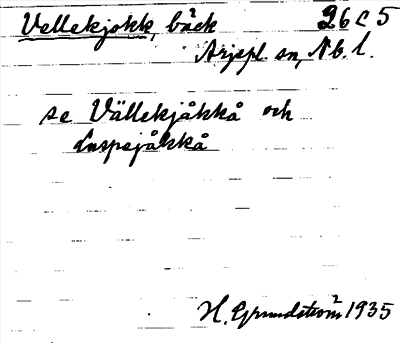 Vellekjokk, bäck 26 C 5
Arjepl. sn, Nb. l.
se Vällekjåkkå och
Luspejåkkå
H. Grundström 1935